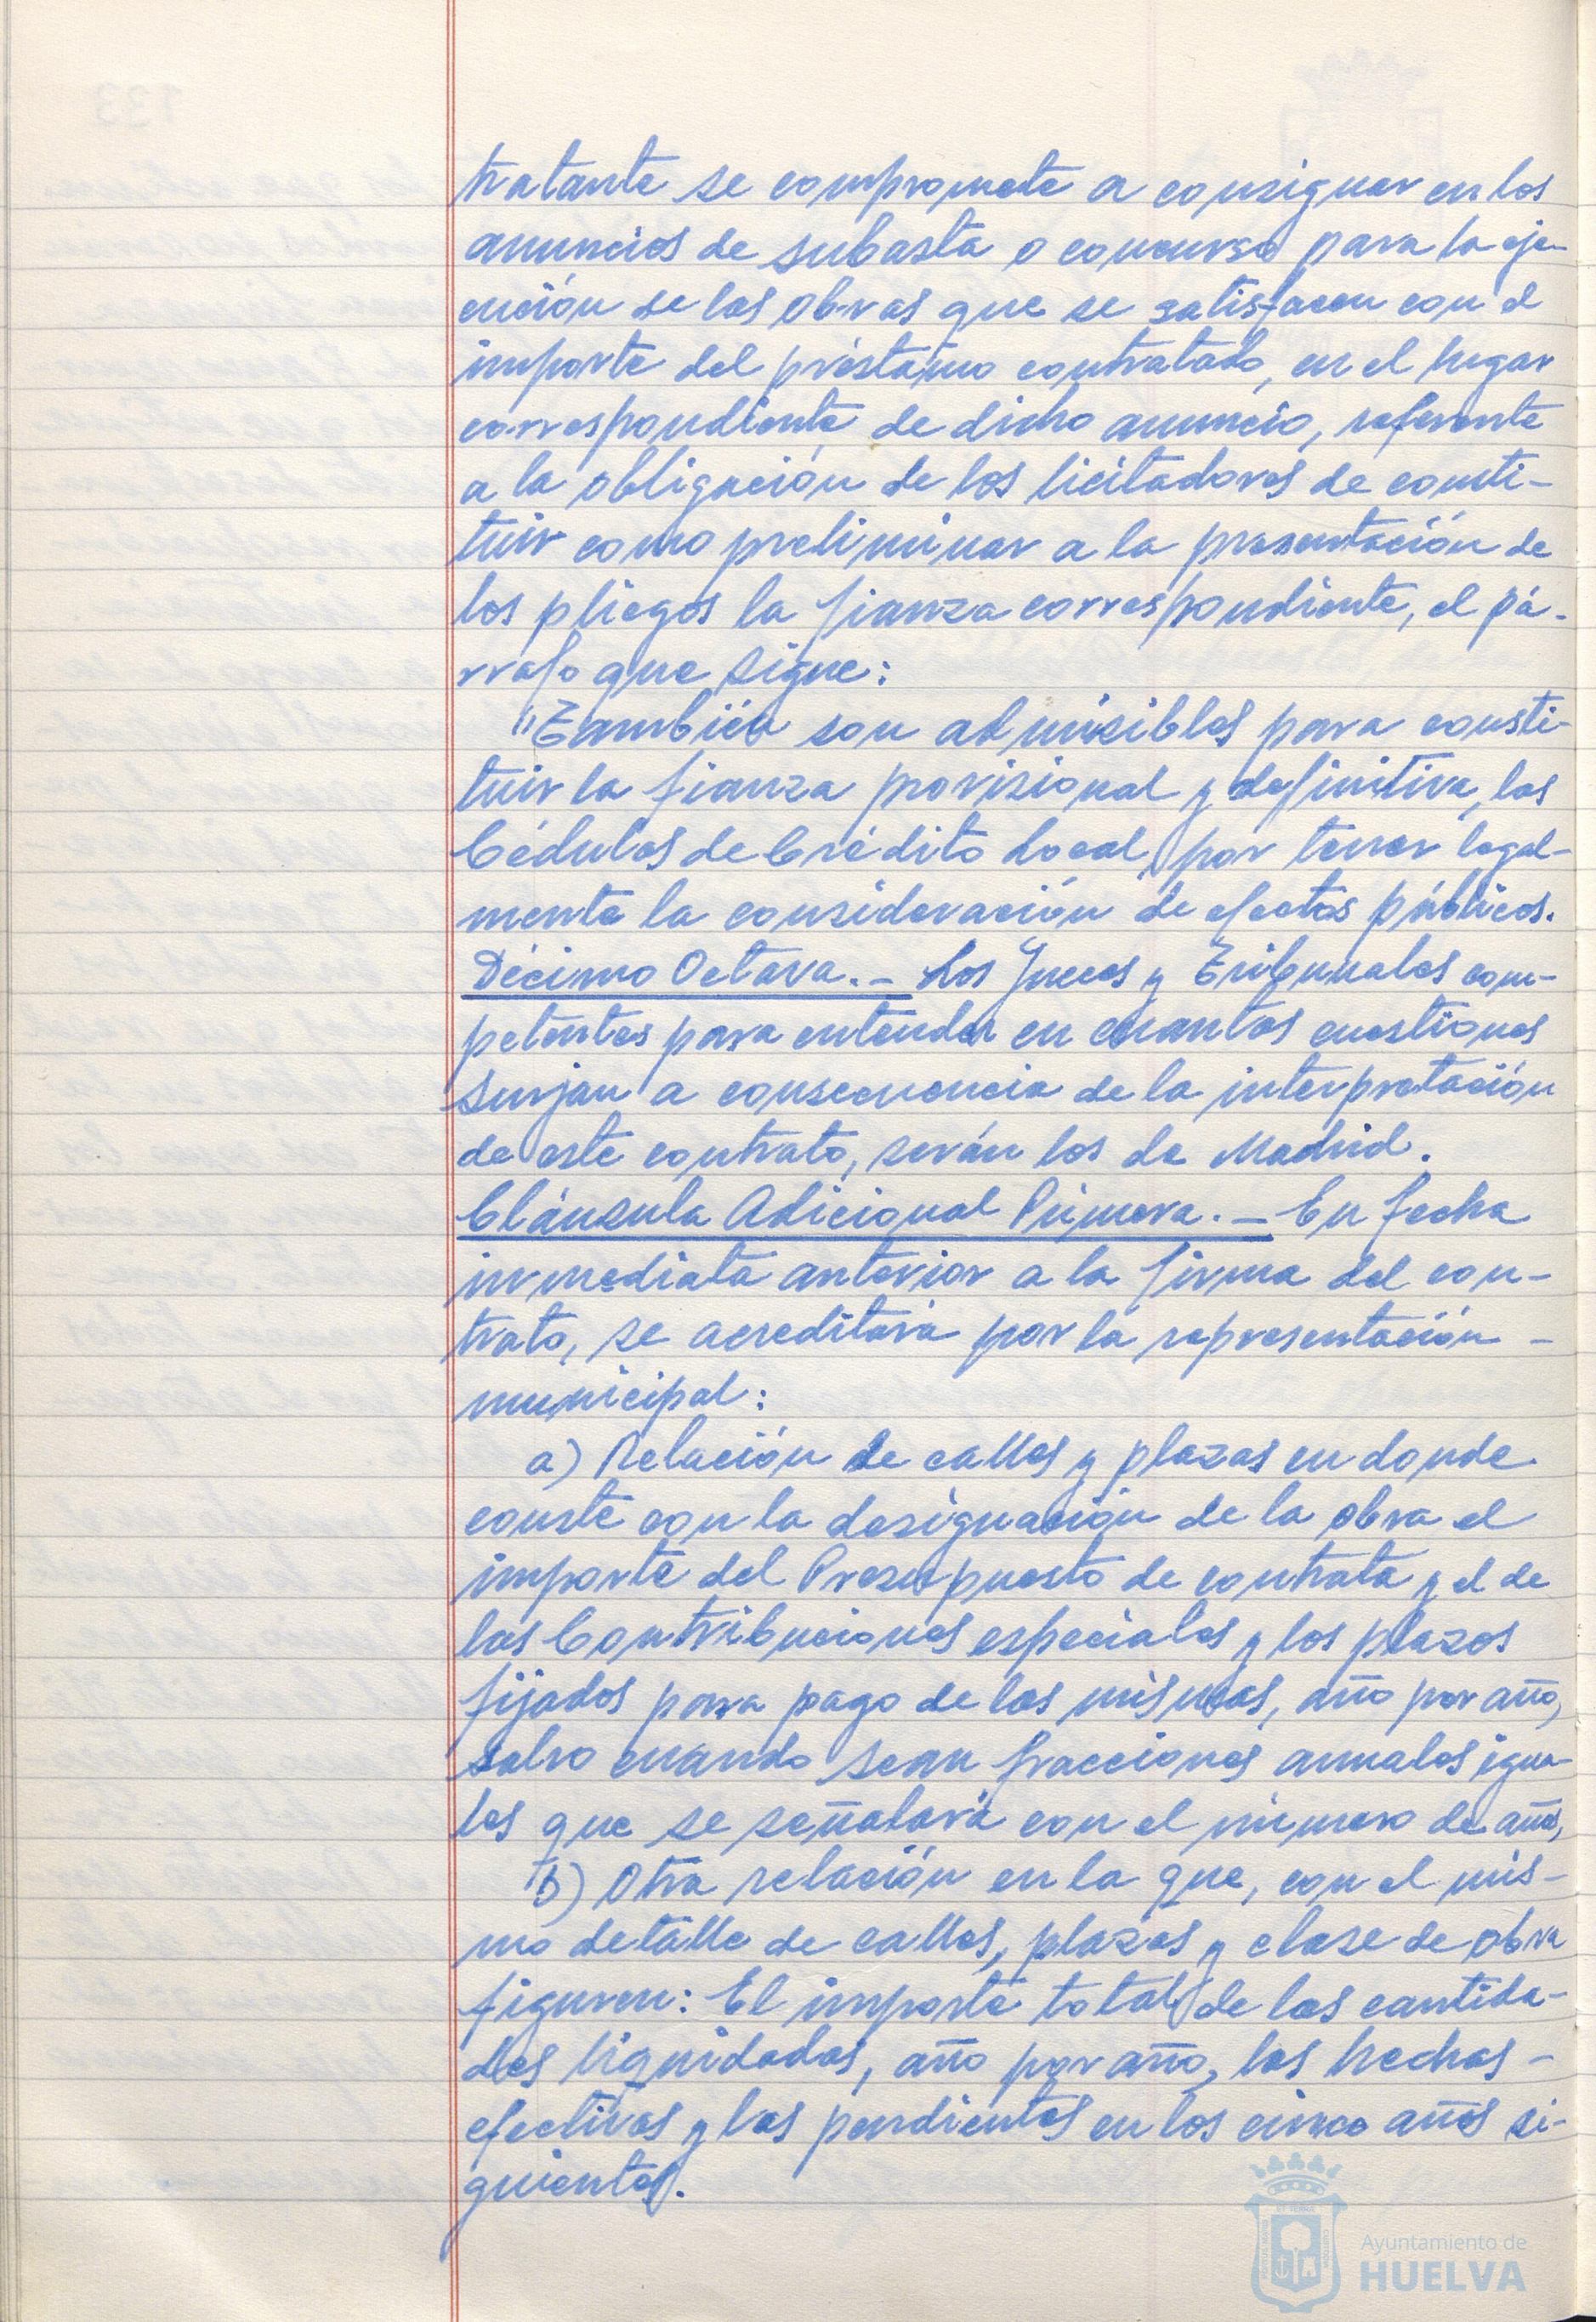 tratante se compromete a consignar en los
anuncios de subasta o concurso para la eje-
cución de las obras que se satisfacen con el
importe del préstamo contratado, en el lugar
correspondiente de dicho anuncio, referente
a la obligación de los licitadores de consti-
tuir como preliminar a la presentación de
los pliegos la fianza correspondiente, el pá-
rrafo que sigue:
"También son admisibles para consti-
tuir la fianza provisional y definitiva, las
Cédulas de Crédito Local, por tener legal-
mente la consideración de efectos públicos.
Décimo Octava.- Los Jueces y Tribunales com-
petentes para entender en cuantas cuestiones
surjan a consecuencia de la interpretación
de este contrato, serán los de Madrid.
Cláusula Adicional Primera.- En fecha
inmediata anterior a la firma del con-
trato, se acreditará por la representación -
municipal:
a) Relación de calles y plazas en donde
conste con la designación de la obra el
importe del Presupuesto de contrata y el de
las Contribuciones especiales y los plazos
fijados para pago de las mismas, año por año,
salvo cuando sean fracciones anuales igua-
les que se señalará con el número de años,
b) Otra relación en la que, con el mis-
mo detalle de calles, plazas y clase de obra
figuren: El importe total de las cantida-
des liquidadas, año por año, las hechas -
efectivas y las pendientes en los cinco años si-
guientes.
Ayuntamiento de
HUELVA